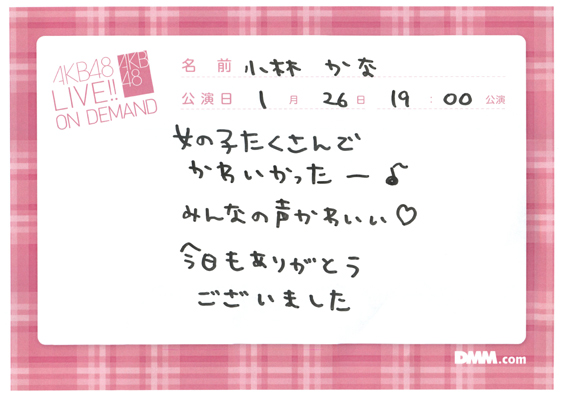 AKB48
LIVE!!
ON DEMAND
AKB
48
名 前 小林 かな
公演日 1月 26日 19:00 公演
女の子たくさんで
かわいかったー♪
みんなの声かわいい♡
今日もありがとう
ございました
DMM.com